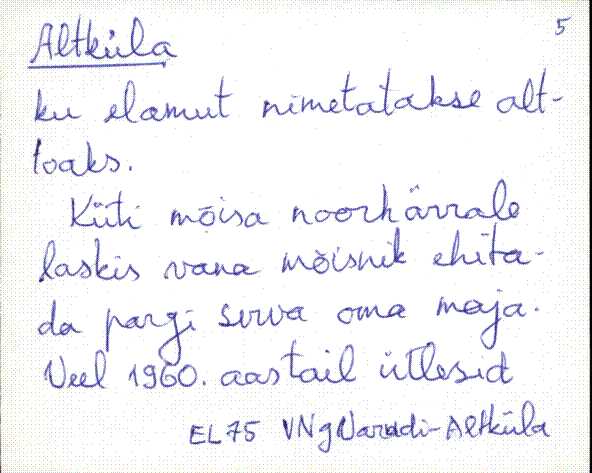 5
Altküla
ku elamut nimetatakse alt-
toaks.
Küti mõisa noorhärrale
laskis vana mõisnik ehita-
da pargi serva oma maja.
Veel 1960. aastail ütlesid
EL75 VNg Varudi-Altküla